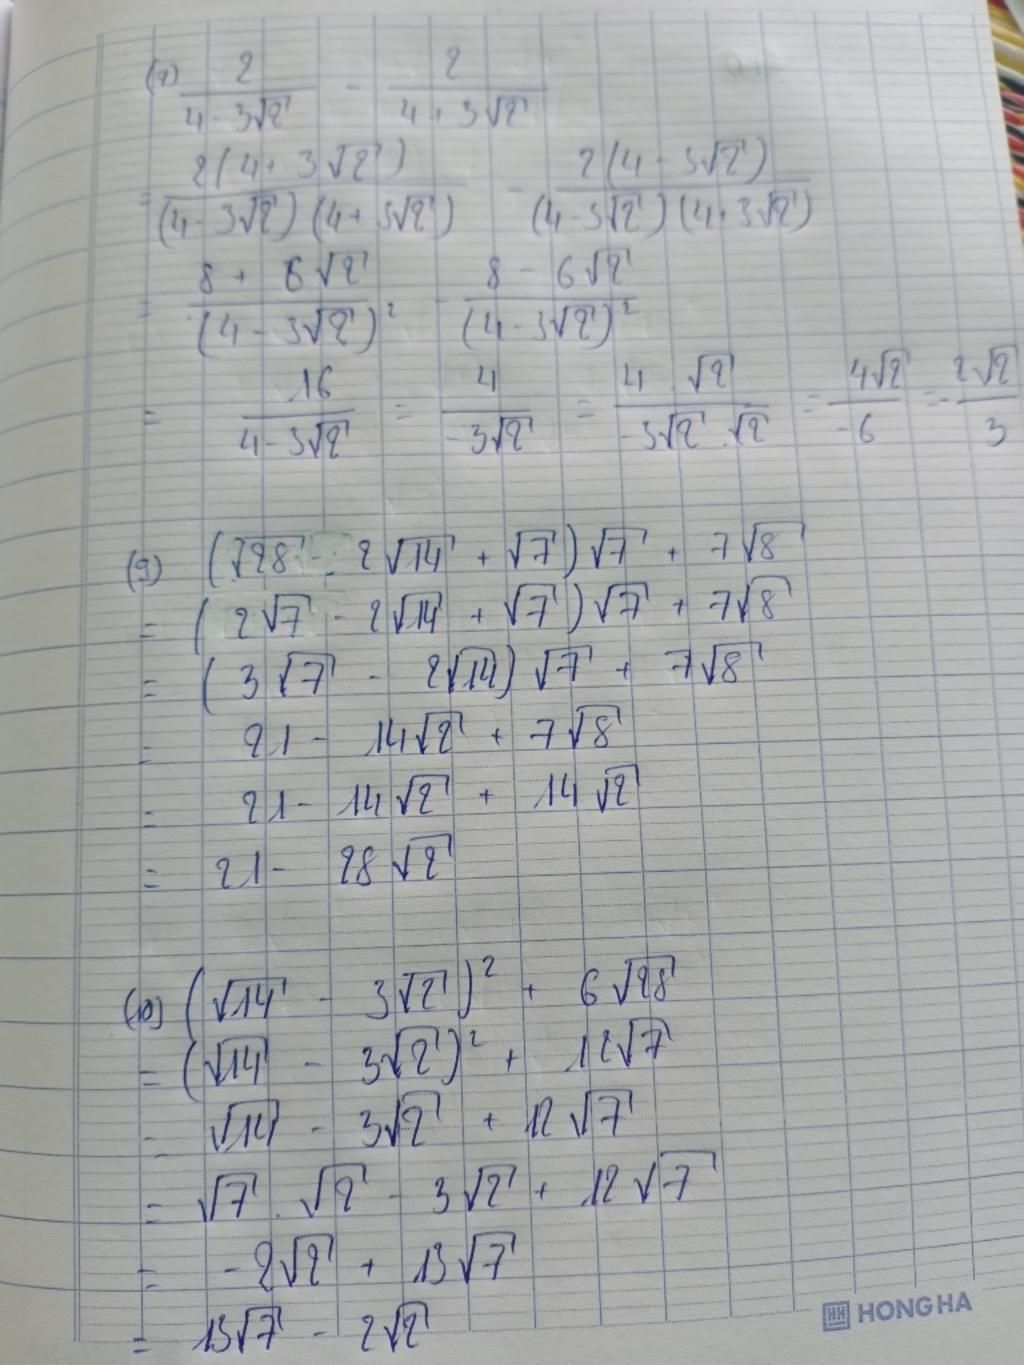 (7) 2/(4 - 3√2) - 2/(4 + 3√2)
= 2(4 + 3√2)/((4 - 3√2)(4 + 3√2)) - 2(4 - 3√2)/((4 - 3√2)(4 + 3√2))
= (8 + 6√2)/(4 - 3√2)² - (8 - 6√2)/(4 - 3√2)²
= 16/(4 - 3√2) = 4/(-3√2) = (4 . √2)/(-3√2 . √2) = 4√2/(-6) = -2√2/3
(9) (√28 - 2√14 + √7)√7 + 7√8
= (2√7 - 2√14 + √7)√7 + 7√8
= (3√7 - 2√14)√7 + 7√8
= 21 - 14√2 + 7√8
= 21 - 14√2 + 14√2
= 21 - 28√2
(10) (√14 - 3√2)² + 6√28
= (√14 - 3√2)² + 12√7
= √14 - 3√2 + 12√7
= √7 . √2 - 3√2 + 12√7
= -2√2 + 13√7
= 13√7 - 2√2
HONG HA